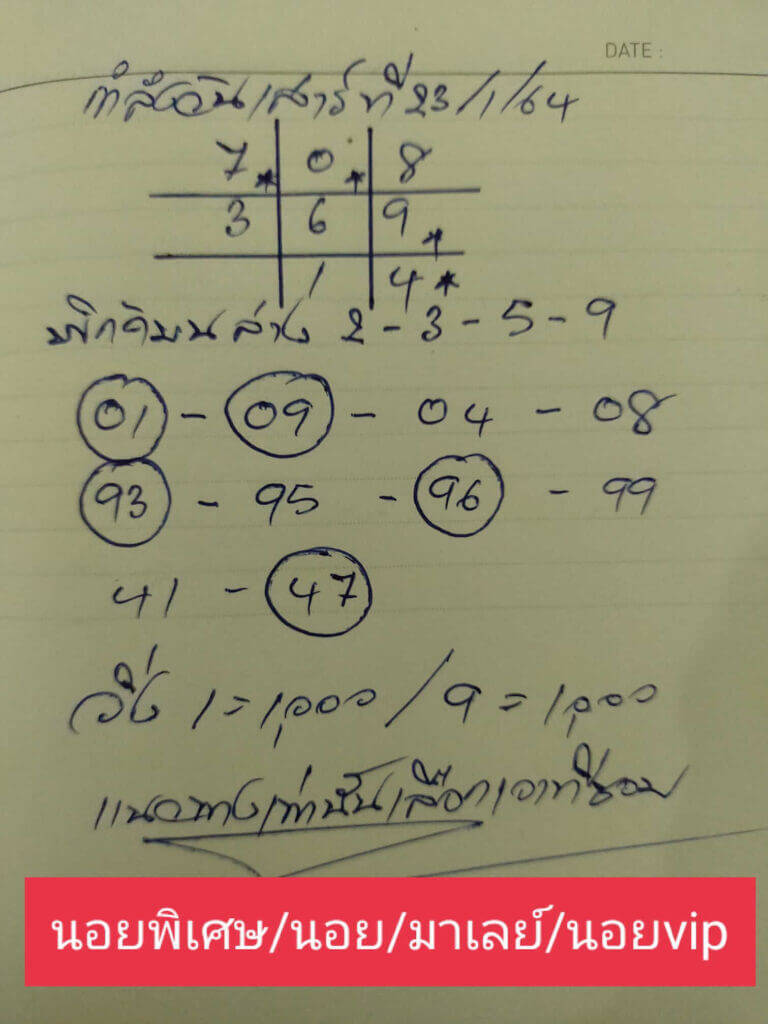 DATE :
กำลังวันเสาร์ที่ 23/1/64
7 * 0 * 8
3 6 9 *
1 4 *
พิกัดบน ล่าง 2 - 3 - 5 - 9
01 - 09 - 04 - 08
93 - 95 - 96 - 99
41 - 47
วิ่ง 1 = 1,000 / 9 = 1,000
แนวทางเท่านั้นเลือกเอาที่ชอบ
นอยพิเศษ/นอย/มาเลย์/นอยvip